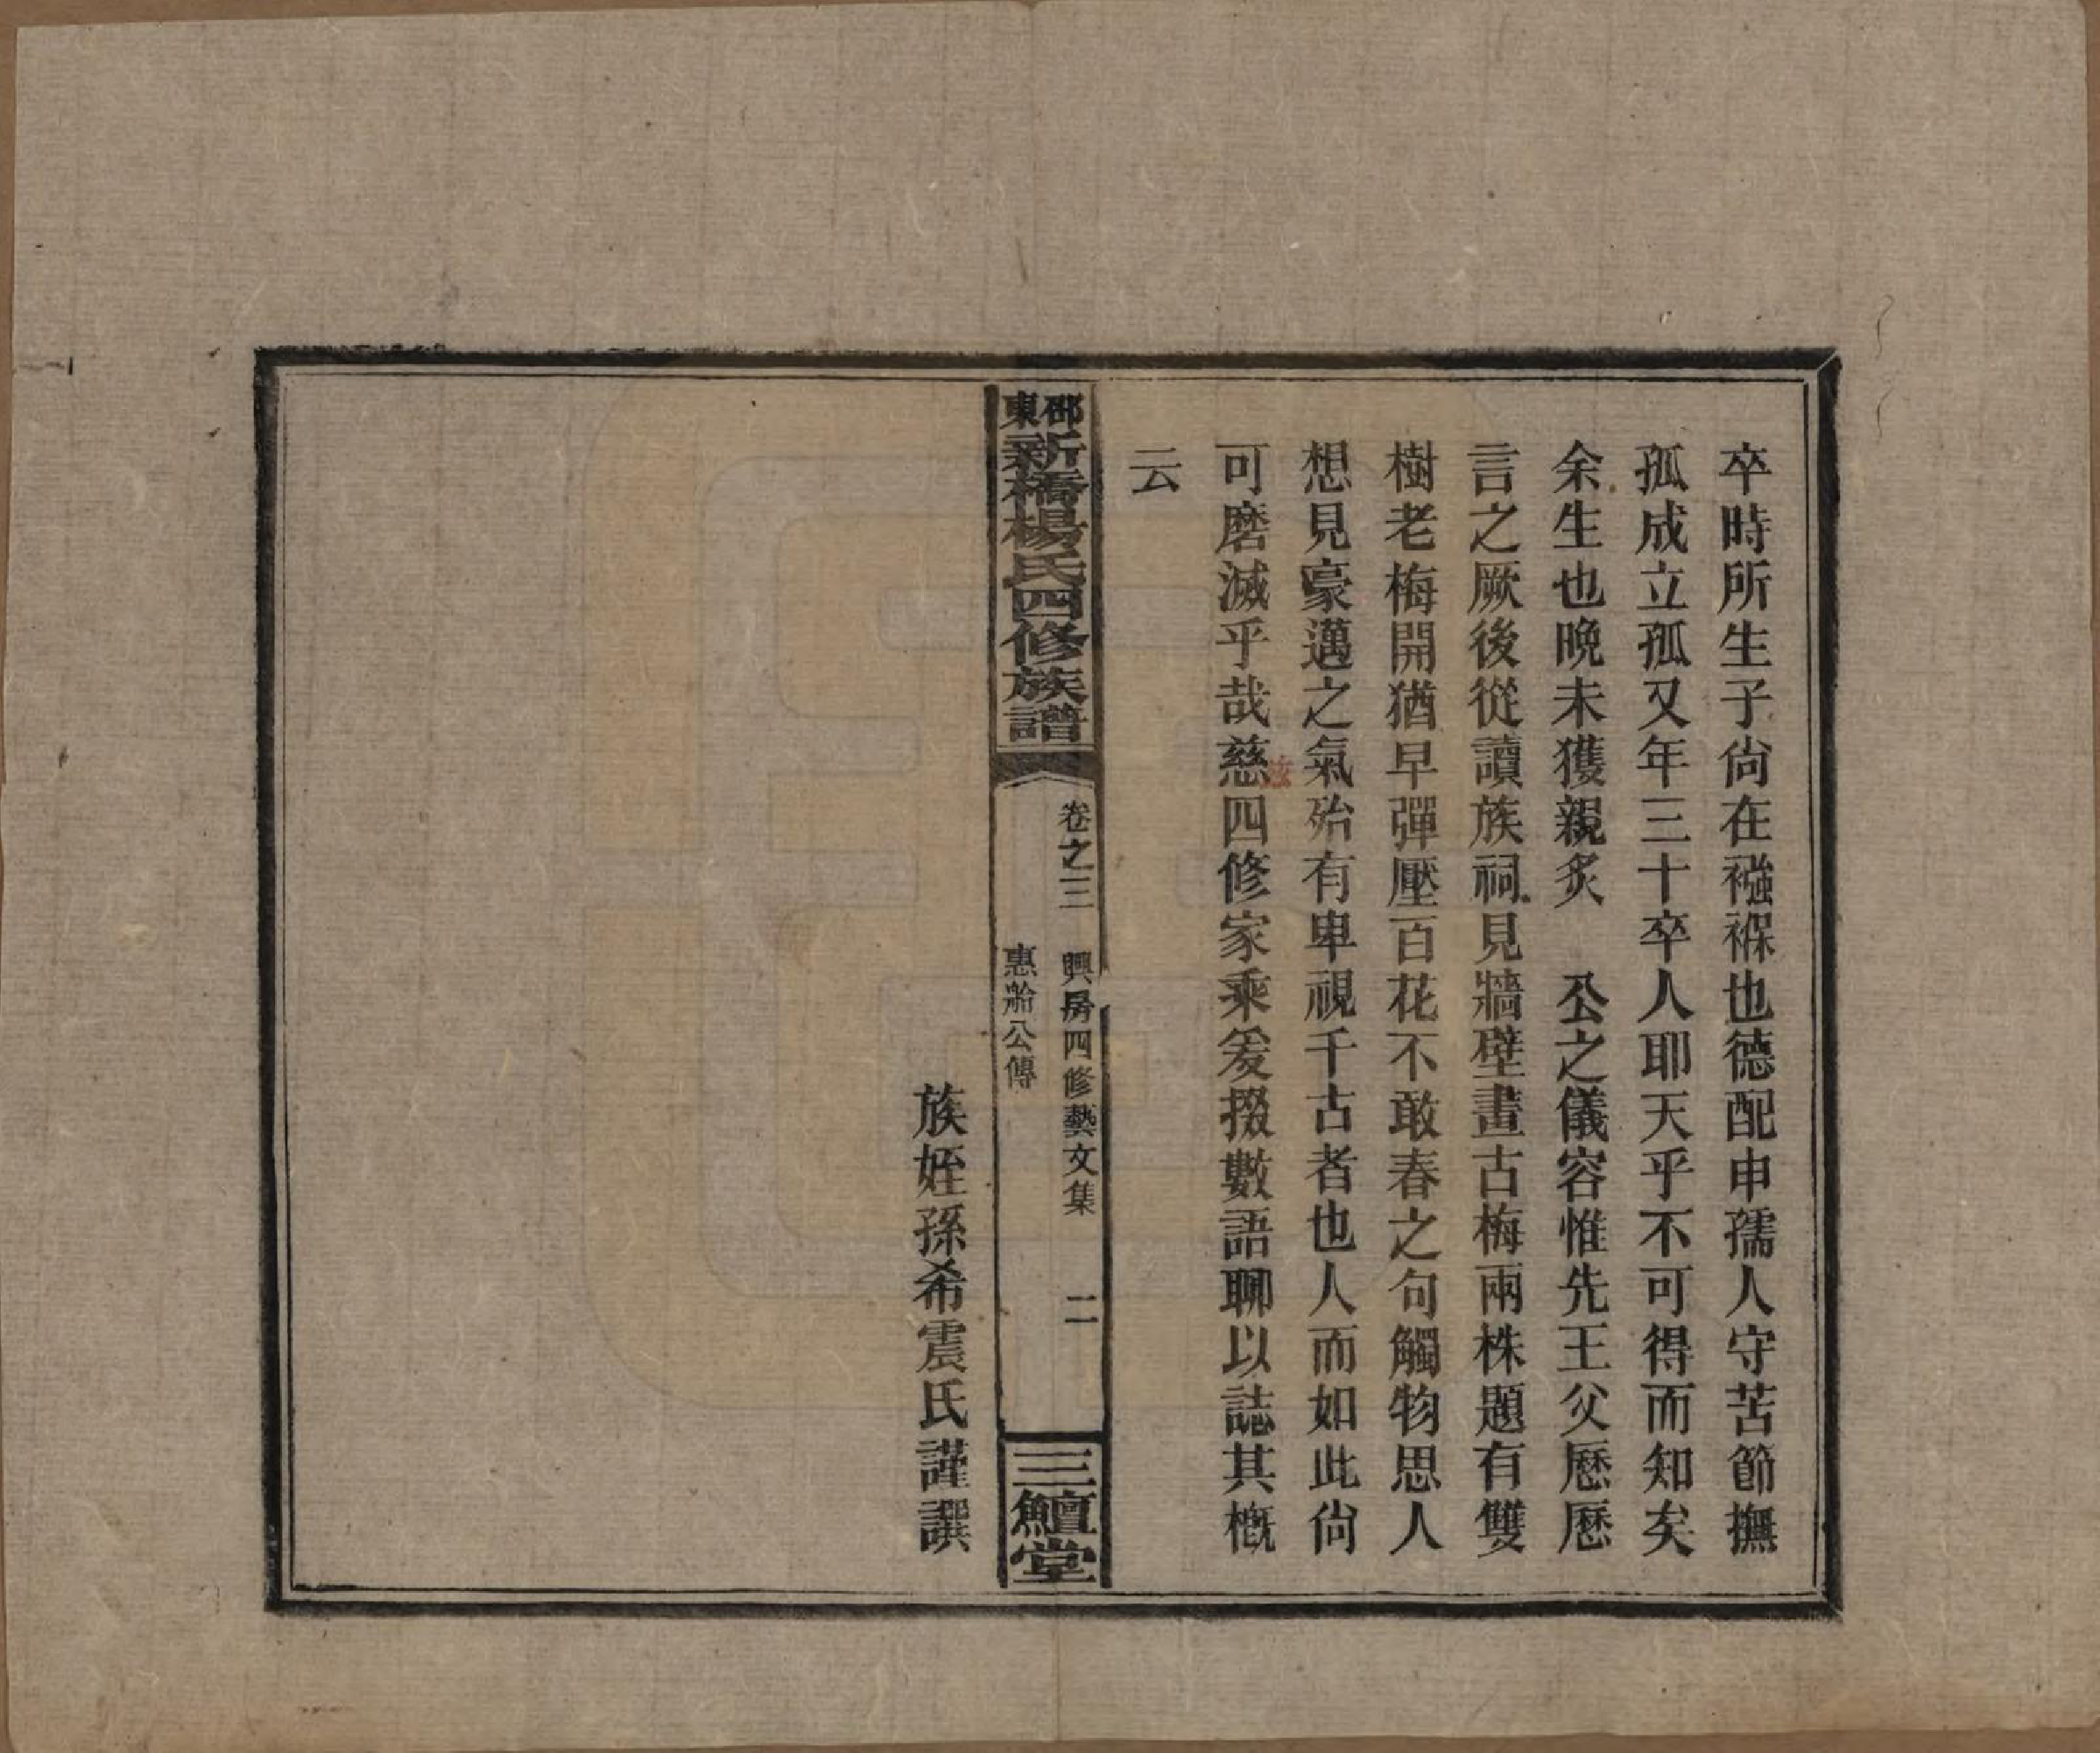 卒時所生子尙在襁褓也德配申孺人守苦節撫
孤成立孤又年三十卒人耶天乎不可得而知矣
余生也晚未獲親炙　公之儀容惟先王父歷歷
言之厥後從讀族祠見牆壁畫古梅兩株題有雙
樹老梅開猶早彈壓百花不敢春之句觸物思人
想見豪邁之氣殆有卑視千古者也人而如此尙
可磨滅乎哉慈四修家乘爰掇數語聊以誌其槪
茲
云
邵東新橋楊氏四修族譜
卷之三　興房四修藝文集　二
惠船公傳
三鱣堂
族姪孫希震氏謹譔